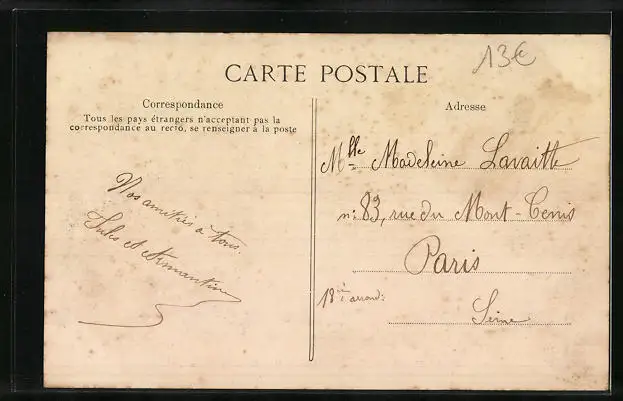 13€
CARTE POSTALE
Correspondance
Tous les pays étrangers n'acceptant pas la
correspondance au recto, se renseigner à la poste
Nos amitiés a tous.
Jules et Armantine
Adresse
Mlle Madeleine Lavaitte
n: 83, rue du Mont-Cenis
Paris
18e arrond:
Seine